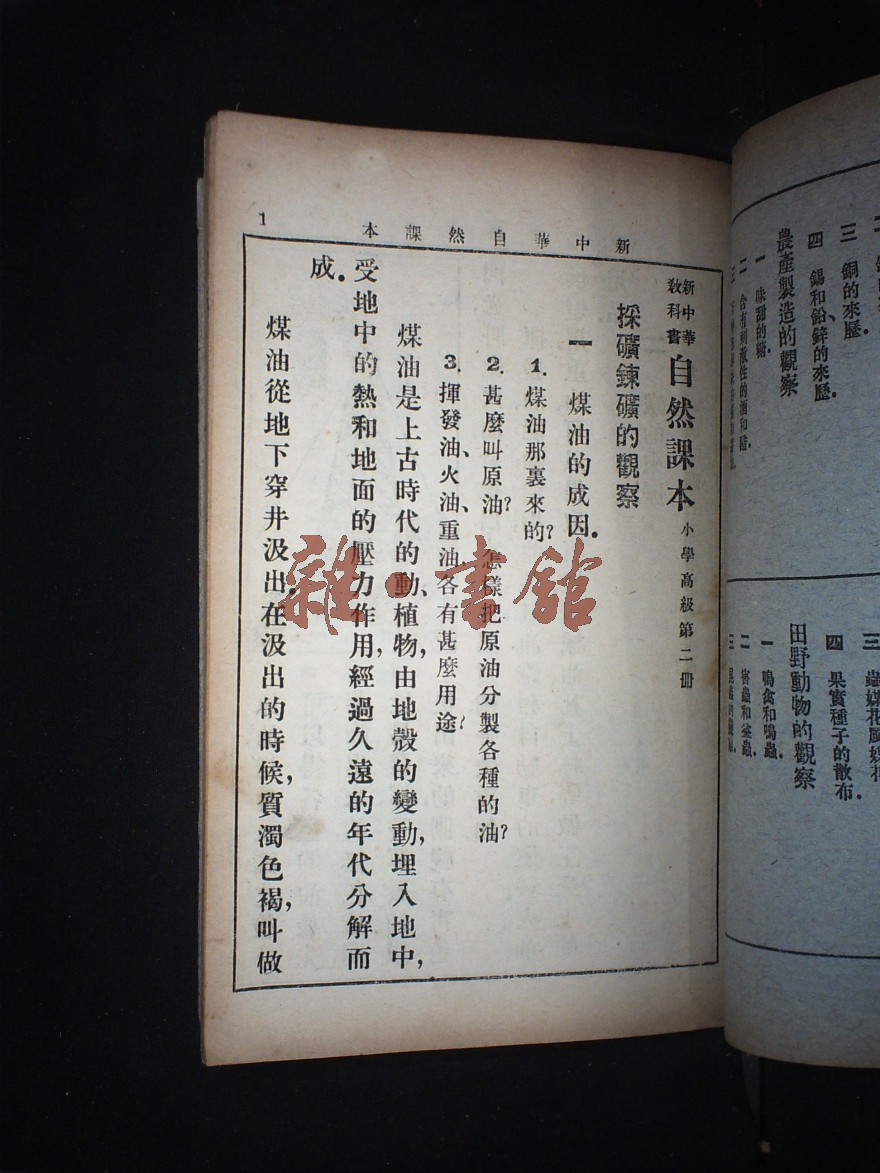 1
新中華自然課本
新中華
教科書
自然課本 小學高級第二册
採礦鍊礦的觀察
一 煤油的成因.
1. 煤油那裏來的?
2. 甚麼叫原油? 怎樣把原油分製各種的油?
3. 揮發油、火油、重油各有甚麼用途?
煤油是上古時代的動、植物,由地殼的變動,埋入地中,
受地中的熱和地面的壓力作用,經過久遠的年代分解而
成.
煤油從地下穿井汲出.在汲出的時候,質濁色褐,叫做
三 銅的來歷.
四 錫和鉛、鋅的來歷.
農產製造的觀察
一 味甜的糖.
二 含有刺激性的酒和醋.
三 蟲媒花風媒花
四 果實種子的散布.
田野動物的觀察
一 鳴禽和鳴蟲.
二 害蟲和益蟲.
三
雜·書館